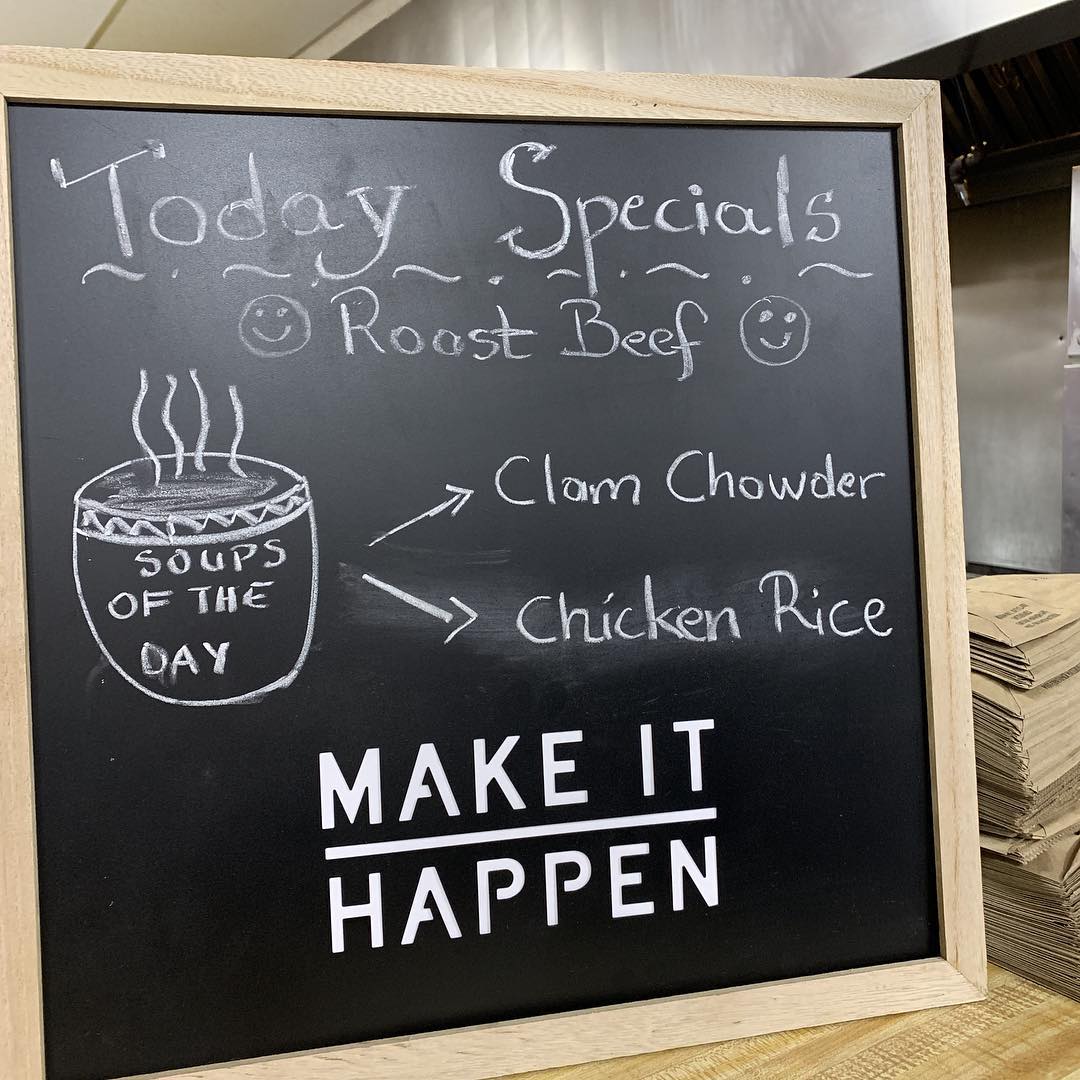 Today Specials
Roast Beef
SOUPS
OF THE
DAY
Clam Chowder
Chicken Rice
MAKE IT
HAPPEN